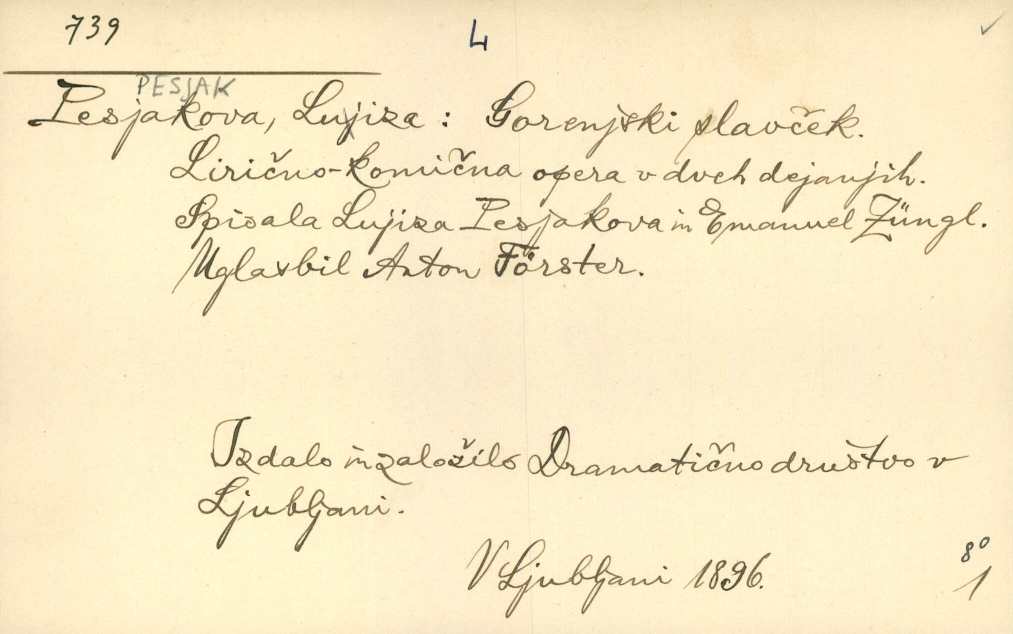 739
4
PESJAK
Pesjakova, Lujiza : Gorenjski slavček.
Lirično-komična opera v dveh dejanjih.
Spisala Lujiza Pesjakova in Emanuel Züngl.
Uglasbil Anton Förster.
Izdalo in založilo Dramatično društvo v
Ljubljani.
V Ljubljani 1896.
8°
1